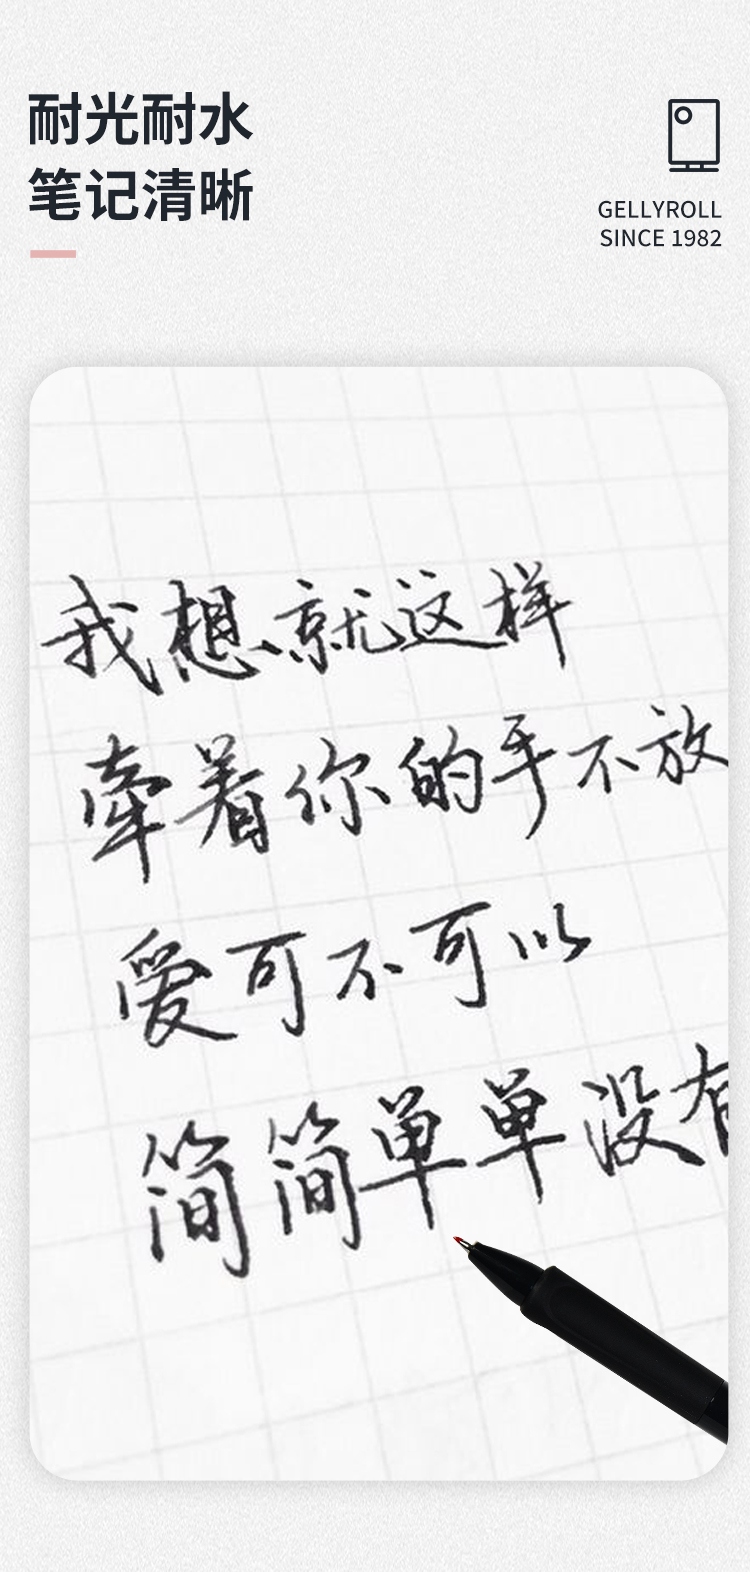 耐光耐水
笔记清晰
GELLYROLL
SINCE 1982
我想就这样
牵着你的手不放
爱可不可以
简简单单没有